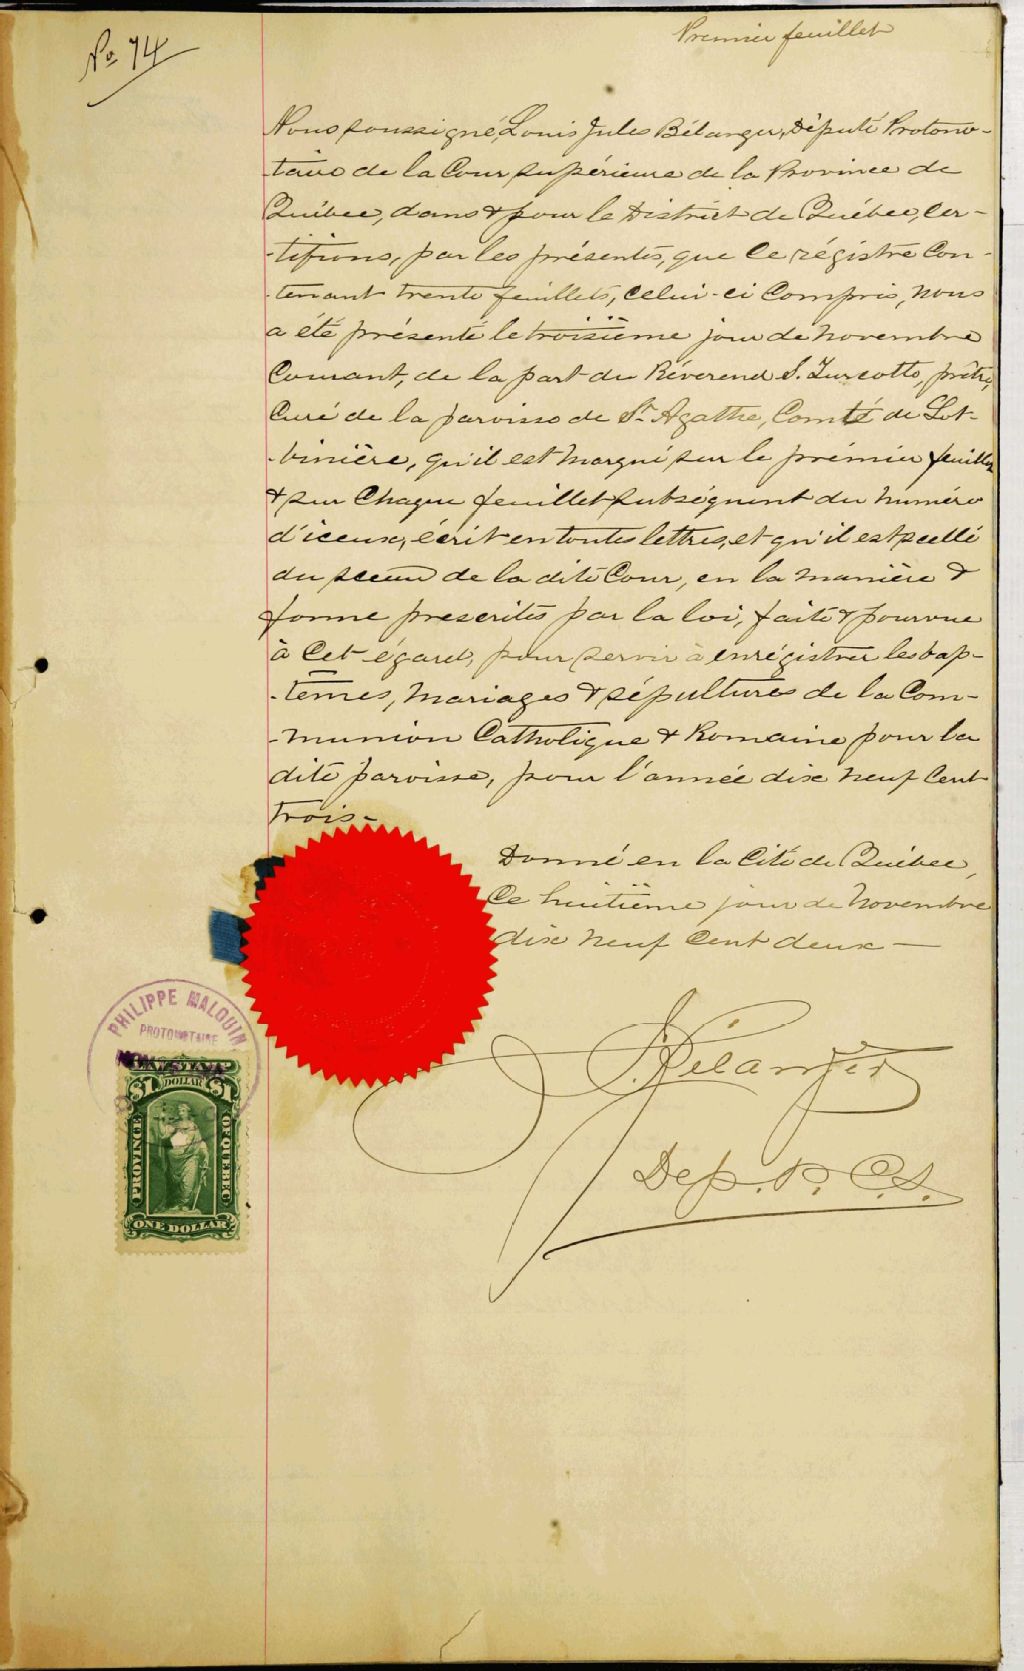 No 74
Premier feuillet
Nous soussigné, Louis Jules Bélanger, Député Protono-
-taire de la Cour supérieure de la Province de
Québec, dans & pour le District de Québec, cer-
-tifions, par les présentes, que ce régistre con-
-tenant trente feuillets, celui-ci compris, nous
a été présenté le troisième jour de novembre
courant, de la part du Révérend S. Turcotte, prêtre,
curé de la paroisse de St Agathe, Comté de Lot-
-binière, qu'il est marqué sur le prémier feuillet
& sur chaque feuillet subséquent du numéro
d'iceux, écrit en toutes lettres, et qu'il est scellé
du sceau de la dite Cour, en la manière &
forme prescrites par la loi, faite & pourvue
à cet égard, pour servir à enrégistrer les bap-
-têmes, mariages & sépultures de la Com-
-munion Catholique & Romaine pour la
dite paroisse, pour l'année dix neuf cent
trois -
Donné en la Cité de Québec,
ce huitième jour de novembre
dix neuf cent deux —
PHILIPPE MALOUIN
PROTONOTAIRE
$1 DOLLAR $1
PROVINCE OF QUEBEC
ONE DOLLAR
Bélanger
Dep. P. C.S.